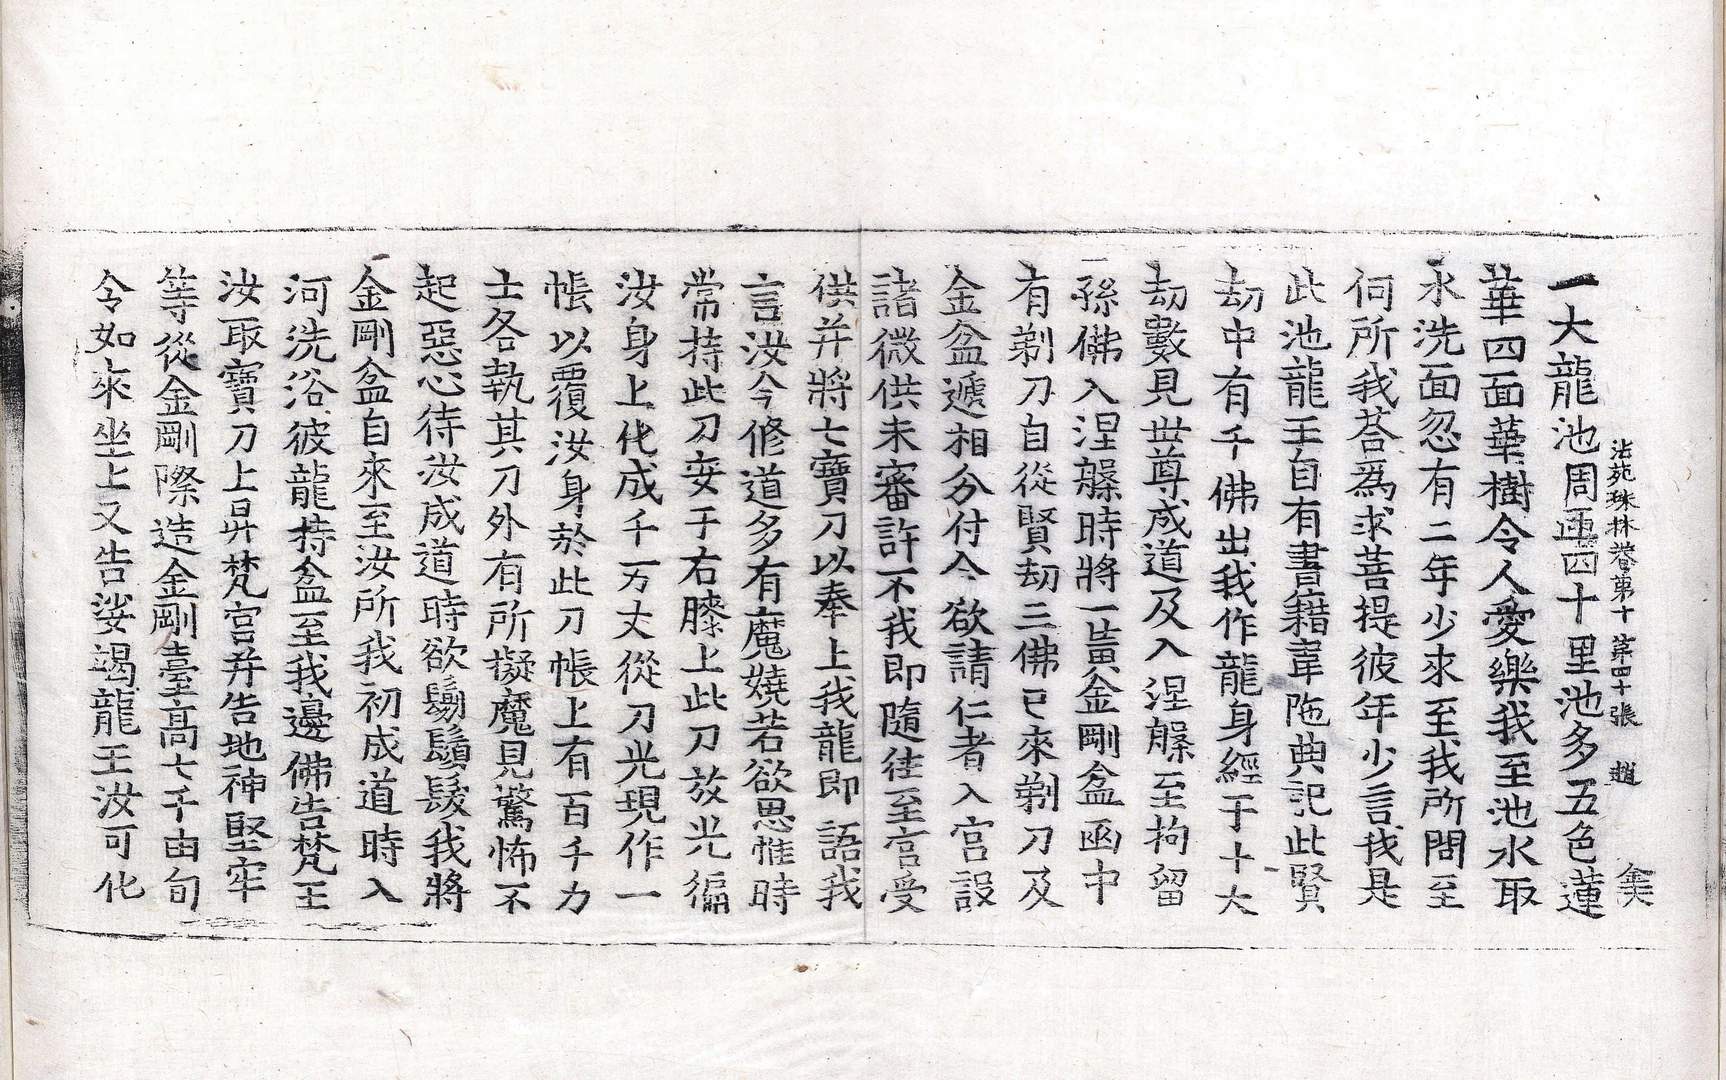 法苑珠林卷第十 第四十張 趙
一大龍池周迊四十里池多五色蓮
華四面華樹令人愛樂我至池水取
水洗面忽有二年少來至我所問至
何所我荅爲求菩提彼年少言我是
此池龍王自有書籍韋陁典記此賢
劫中有千佛出我作龍身經于十大
劫數見世尊成道及入涅槃至拘留
孫佛入涅槃時將一黃金剛盆函中
有剃刀自從賢劫三佛已來剃刀及
金盆遞相分付今欲請仁者入宮設
諸微供未審許不我即隨往至宮受
供并將七寶刀以奉上我龍即語我
言汝今修道多有魔嬈若欲思惟時
常持此刀安于右膝上此刀放光徧
汝身上化成千万丈從刀光現作一
帳以覆汝身於此刀帳上有百千力
士各執其刀外有所擬魔見驚怖不
起惡心待汝成道時欲剔鬚髮我將
金剛盆自來至汝所我初成道時入
河洗浴彼龍持盆至我邊佛告梵王
汝取寶刀上昇梵宮并告地神堅牢
等從金剛際造金剛臺高七千由旬
令如來坐上又告娑竭龍王汝可化